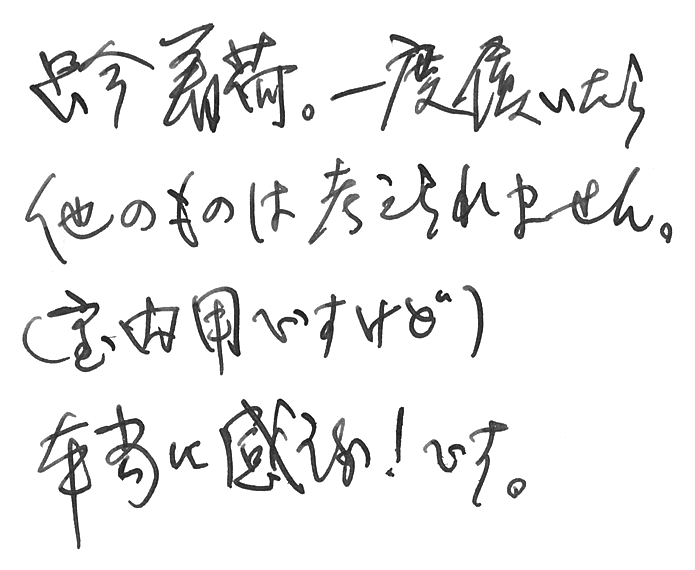 只今着荷。一度履いたら
他のものは考えられません。
(室内用ですけど)
本当に感激!です。